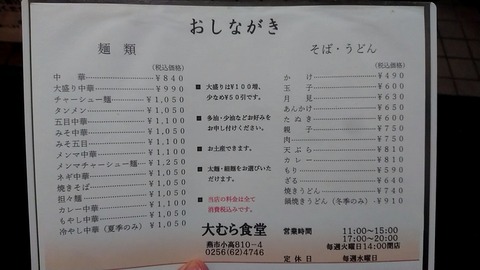 おしながき
麺類
(税込価格)
中華 ¥840
大盛り中華 ¥990
チャーシュー麺 ¥1,050
タンメン ¥1,050
五目中華 ¥1,050
みそ中華 ¥1,050
みそ五目 ¥1,100
メンマ中華 ¥1,050
メンマチャーシュー麺 ¥1,250
ネギ中華 ¥1,050
焼きそば ¥1,050
担々麺 ¥1,050
カレー中華 ¥1,100
もやし中華 ¥1,050
冷やし中華(夏季のみ) ¥1,050
■ 大盛りは¥100増、
少なめ¥50引です。
■ 多油・少油などお好みを
お申し付けください。
■ お土産できます。
■ 太麺・細麺をお選びいた
だけます。
■ 当店の料金は全て
消費税込みです。
大むら食堂
燕市小高810-4
0256(62)4746
そば・うどん
(税込価格)
かけ ¥490
玉子 ¥600
月見 ¥630
あんかけ ¥650
たぬき ¥600
親子 ¥750
肉 ¥750
天ぷら ¥810
カレー ¥810
もり ¥590
ざる ¥640
焼きうどん ¥740
鍋焼きうどん(冬季のみ) ¥910
営業時間 11:00~15:00
17:00~20:00
毎週火曜日14:00閉店
定休日 毎週水曜日